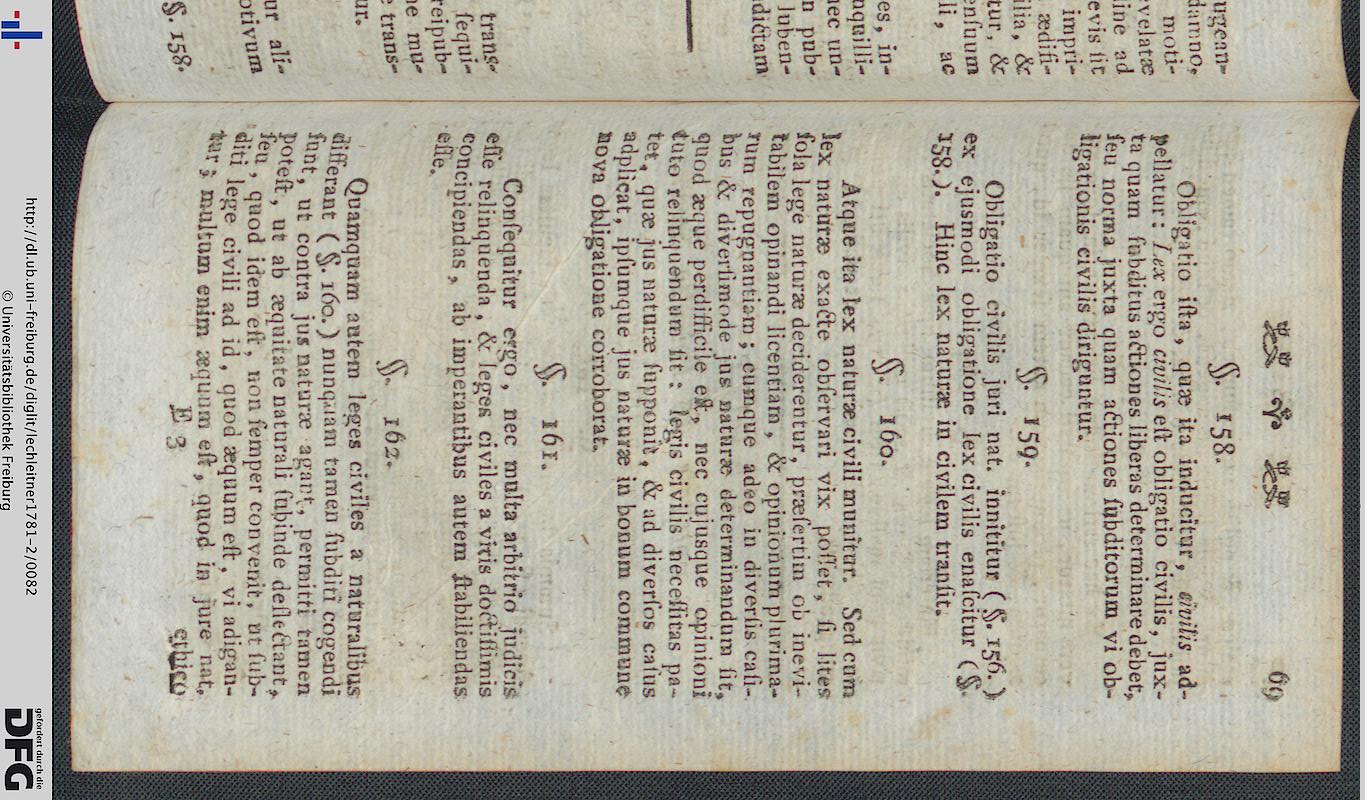 ugean-
damno,
moti-
evelatæ
line ad
evis ſit
impri-
ædifi-
ilia, &
tur, &
enſuum
li, ac
es, in-
nquilli-
nec un-
n pub-
luben-
adictam
trans-
ſequi-
reipub-
ne mu-
e trans-
ur.
ur ali-
otivum
§. 158.
69
§. 158.
Obligatio iſta, quæ ita inducitur, civilis ad-
pellatur: Lex ergo civilis eſt obligatio civilis, jux-
ta quam ſubditus actiones liberas determinare debet,
ſeu norma juxta quam actiones ſubditorum vi ob-
ligationis civilis diriguntur.
§. 159.
Obligatio civilis juri nat. innititur (§. 156.)
ex ejusmodi obligatione lex civilis enaſcitur (§.
158.). Hinc lex naturæ in civilem tranſit.
§. 160.
Atque ita lex naturæ civili munitur. Sed cum
lex naturæ exacte obſervari vix poſſet, ſi lites
ſola lege naturæ deciderentur, præſertim ob inevi-
tabilem opinandi licentiam, & opinionum plurima-
rum repugnantiam; eumque adeo in diverſis caſi-
bus & diverſimode jus naturæ determinandum ſit,
quod æque perdifficile eſt, nec cujusque opinioni
tuto relinquendum ſit: legis civilis neceſſitas pa-
tet, quæ jus naturæ ſupponit, & ad diverſos caſus
adplicat, ipſumque jus naturæ in bonum commune
nova obligatione corroborat.
§. 161.
Conſequitur ergo, nec multa arbitrio judicis
eſſe relinquenda, & leges civiles a viris doctiſſimis
concipiendas, ab imperantibus autem ſtabiliendas
eſſe.
§. 162.
Quamquam autem leges civiles a naturalibus
differant (§. 160.) nunquam tamen ſubditi cogendi
ſunt, ut contra jus naturæ agant, permitti tamen
poteſt, ut ab æquitate naturali ſubinde deflectant,
ſeu, quod idem eſt, non ſemper convenit, ut ſub-
diti lege civili ad id, quod æquum eſt, vi adigan-
tur; multum enim æquum eſt, quod in jure nat.
E 3
ethico
http://dl.ub.uni-freiburg.de/diglit/lechleitner1781-2/0082
© Universitätsbibliothek Freiburg
gefördert durch die
DFG